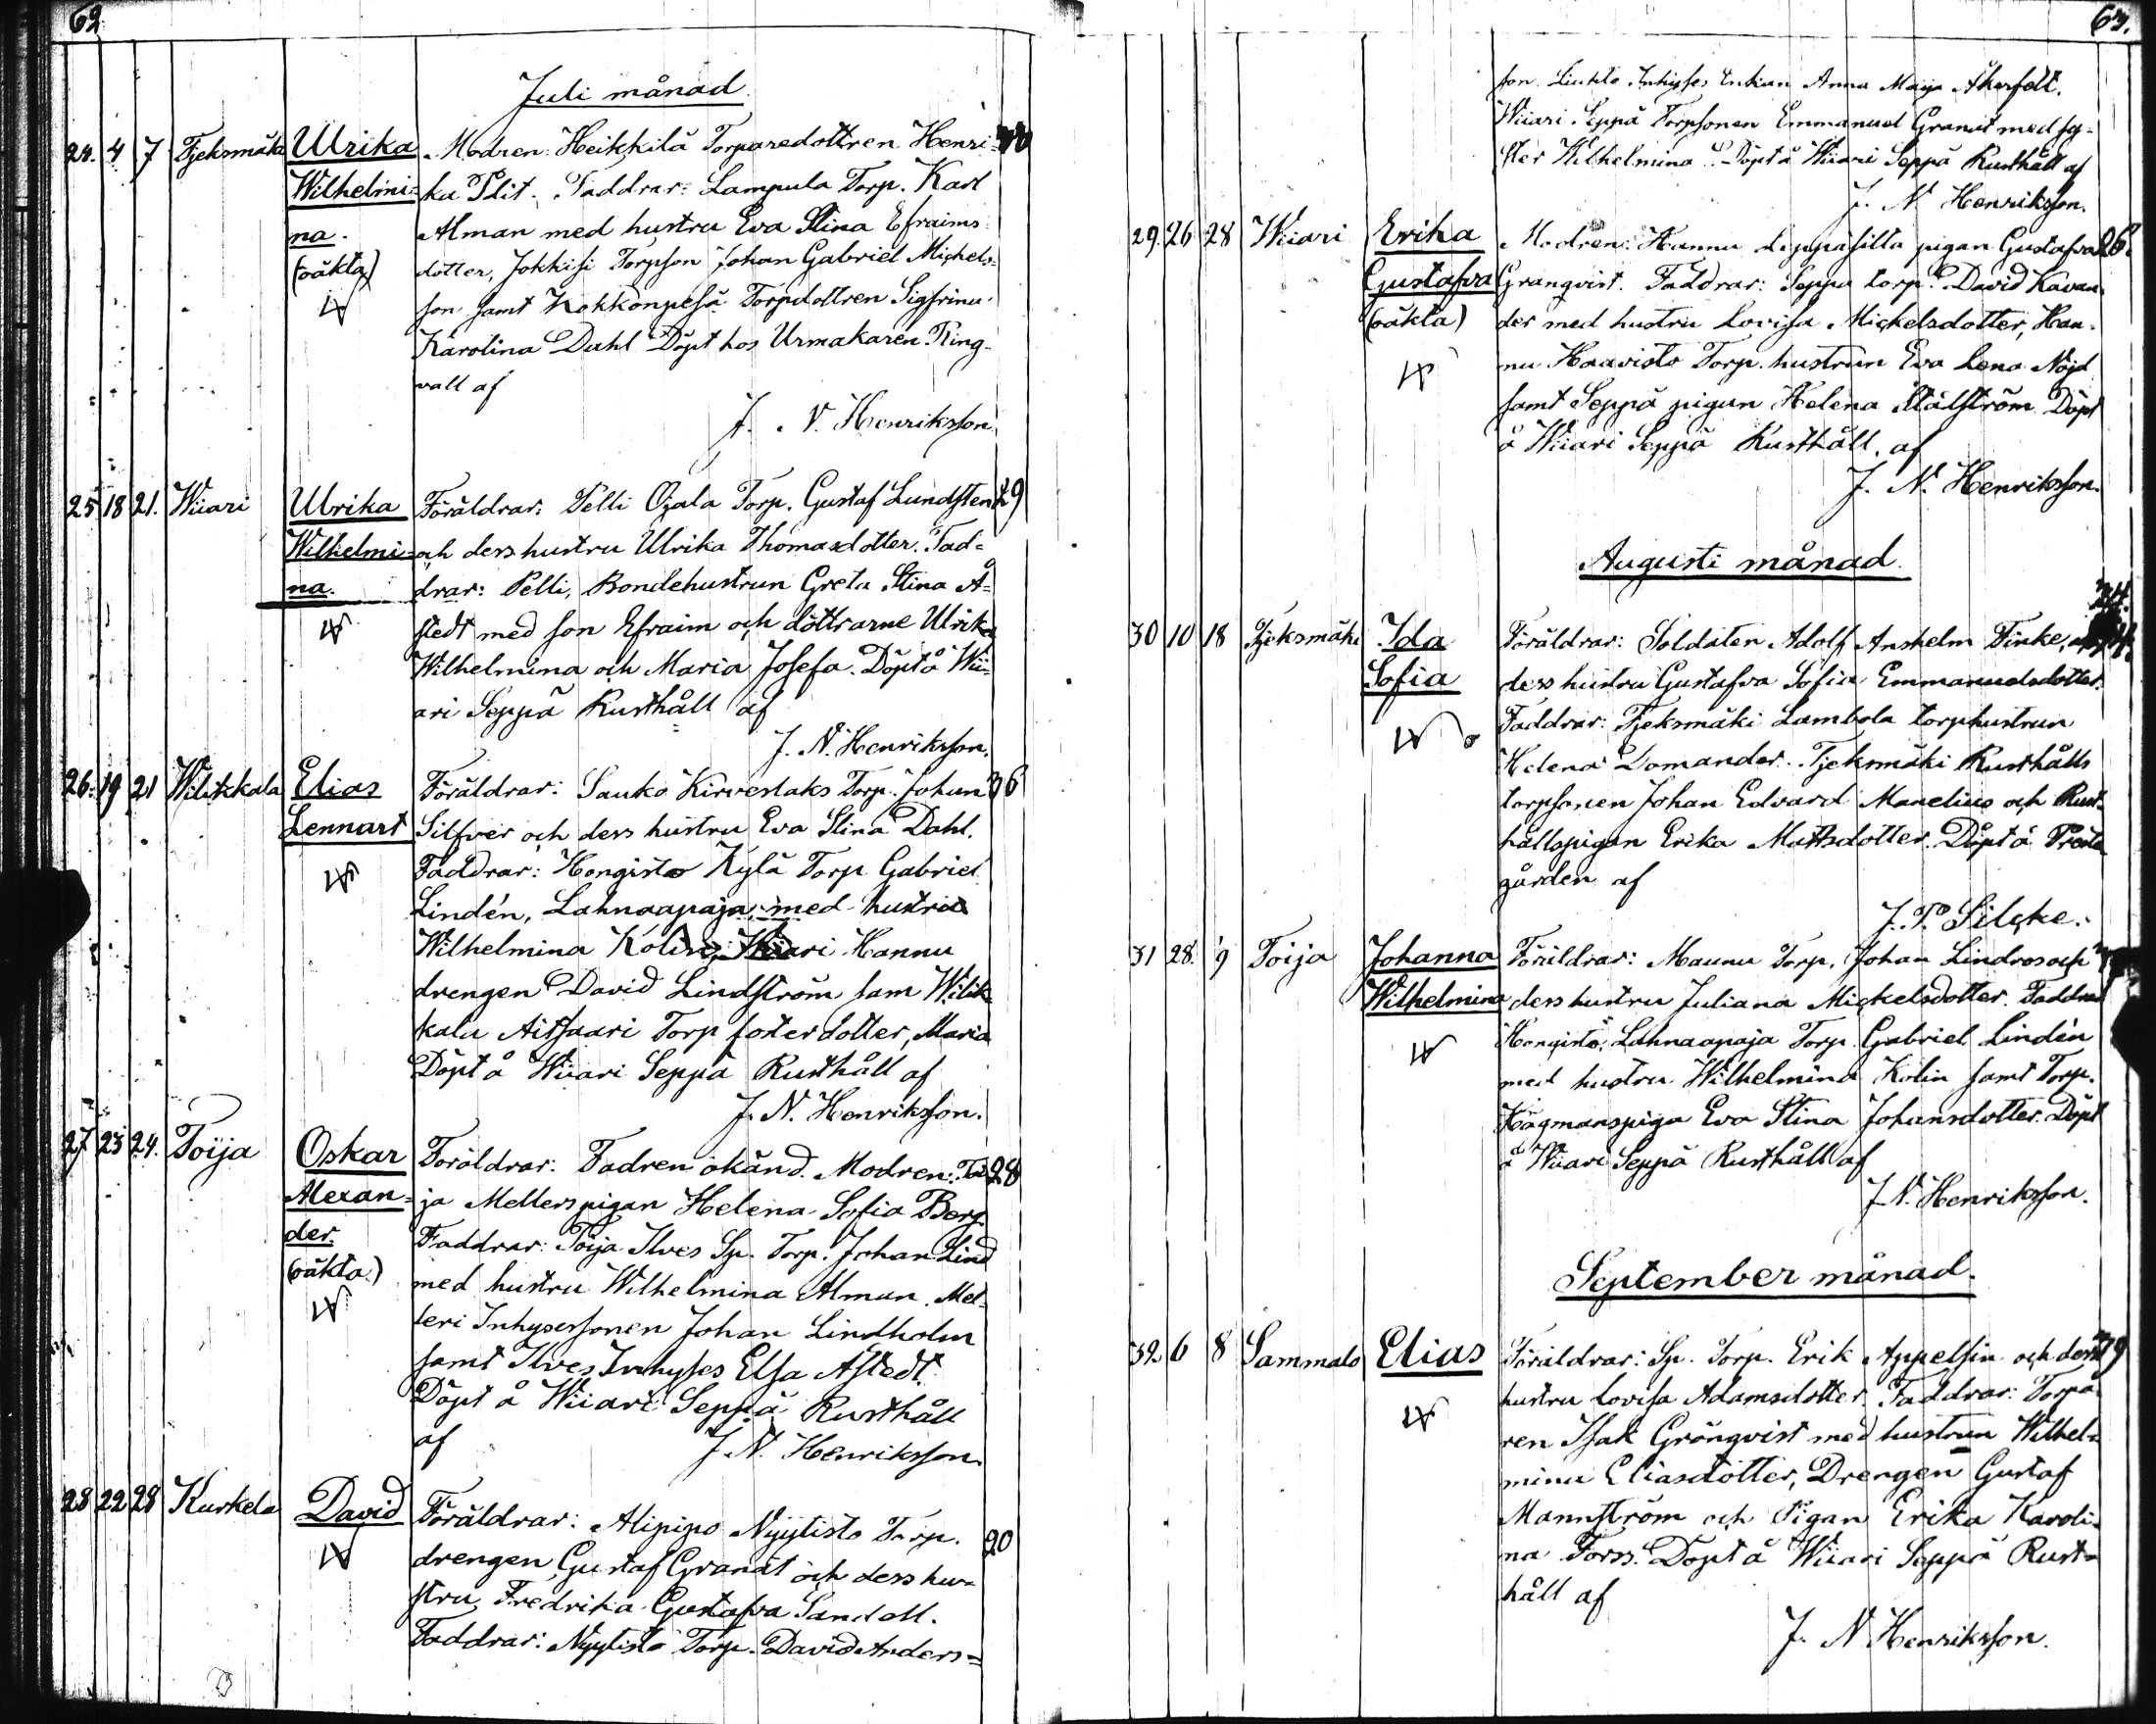 62
Juli månad
24. 4 7 Tjeksmäki Ulrika Modren: Heikkilä Torparedottren Henri-
Wilhelmi- ka Plit. Faddrar: Lampula Torp. Karl
na. Alman med hustru Eva Stina Efraims
(oäkta) dotter, Jokkisi Torpson Johan Gabriel Michels-
son samt Kokkonpesä Torpdottren Sigfrina
Karolina Dahl Döpt hos Urmakaren Ring-
vall af
J. N. Henriksson
25 18 21. Wiiari Ulrika Föräldrar: Pelli Ojala Torp. Gustaf Lundsten 29
Wilhelmi- och dess hustru Ulrika Thomasdotter. Fad-
na. drar: Pelli, Bondehustrun Greta Stina Å-
stedt med son Efraim och döttrarne Ulrika
Wilhelmina och Maria Josefa. Döpt å Wii-
ari Seppä Rusthåll af
J. N. Henriksson.
26. 19 21 Wilikkala Elias Föräldrar: Sauko Kirveslaks Torp. Johan 36
Lennart Silfver och dess hustru Eva Stina Dahl.
Faddrar: Hongisto Kylä Torp Gabriel
Lindén, Lahnaapaja, med hustru
Wilhelmina Kolin, Wiiari Hannu
drengen David Lindström sam Wilik
kala Aitsaari Torp fosterdotter, Maria
Döpt å Wiiari Seppä Rusthåll af
J. N. Henriksson.
27 23 24. Toija Oskar Föräldrar: Fadren okänd. Modren: Toi- 28
Alexan- ja Mellerspigan Helena Sofia Berg.
der. Faddrar: Toija Ilves Sp. Torp. Johan Lind
(oäkta.) med hustru Wilhelmina Alman. Mel-
leri Inhysessonen Johan Lindholm
samt Ilves Inhyses Elsa Åstedt.
Döpt å Wiiari Seppä Rusthåll
af J. N. Henriksson.
28 22 28 Kurkela David Föräldrar: Alipipo Nyylisto Torp. 20
drengen Gustaf Granat och dess hu-
stru Fredrika Gustafva Sandell.
Faddrar: Nyylisto Torp. David Anders-
63.
son. Inhyses Enkan Anna Maija Åkerfelt.
Wiiari Seppä Torpsonen Emmanuel Granat med sy-
ster Wilhelmina. Döpt å Wiiari Seppä Rusthåll af
J. N. Henriksson.
29. 26 28 Wiiari Erika Modren: Hannu Leppäsilta pigan Gustafva 26.
Gustafva Granqvist. Faddrar: Seppä torp. David Kavan-
(oäkta) der med hustru Lovisa Mickelsdotter, Han-
nu Haavisto Torp. hustrun Eva Lena Nöjd
samt Seppä pigan Helena Stålström Döpt
å Wiiari Seppä Rusthåll. af
J. N. Henriksson.
Augusti månad.
30 10 18 Tjeksmäki Ida Föräldrar: Soldaten Adolf Anshelm Finke, och
Sofia dess hustru Gustafva Sofia Emmanuelsdotter.
Faddrar: Tjeksmäki Lambola torphustrun
Helena Domander. Tjeksmäki Rusthålls
torpsonen Johan Edvard Manelius och Rust-
hållspigan Erika Mattsdotter. Döpt å Prest-
gården af
J. P. Silcke.
31 28. 9 Toija Johanna Föräldrar: Maunu Torp. Johan Lindros och
Wilhelmina dess hustru Juliana Mickelsdotter. Faddrar
Hongisto, Lahnaapaja Torp. Gabriel Lindén
med hustru Wilhelmina Kolin samt Torp.
Hägmanspiga Eva Stina Johansdotter. Döpt
å Wiiari Seppä Rusthåll af
J. N. Henriksson.
September månad.
32 6 8 Sammalo Elias Föräldrar: Sp. Torp. Erik Appelsin och dess
hustru Lovisa Adamsdotter. Faddrar: Torpa-
ren Isak Grönqvist med hustrun Wilhel-
mina Eliasdotter, Drengen Gustaf
Mannström och Pigan Erika Karoli-
na Forss. Döpt å Wiiari Seppä Rust-
håll af
J. N Henriksson.